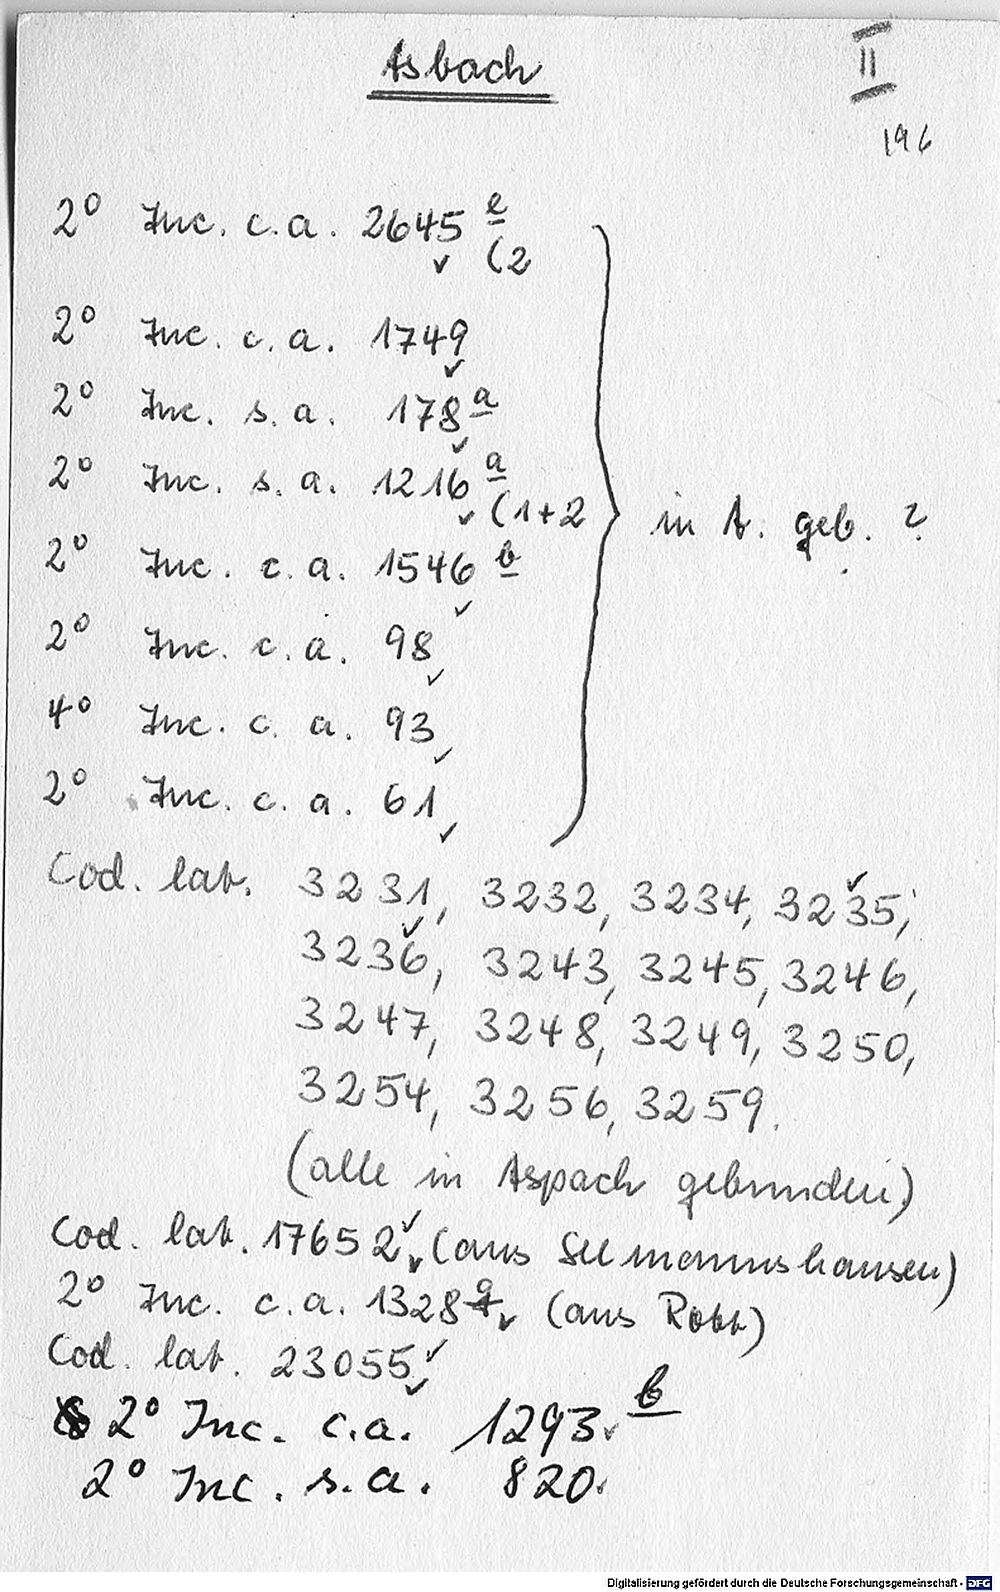 Asbach
II
196
2° Inc. c.a. 2645 e
(2
2° Inc. c.a. 1749
2° Inc. s.a. 178 a
2° Inc. s.a. 1216 a
(1+2
in A. geb. ?
2° Inc. c.a. 1546 b
2° Inc. c.a. 98
4° Inc. c.a. 93
2° Inc. c.a. 61
Cod. lat. 3231, 3232, 3234, 3235,
3236, 3243, 3245, 3246,
3247, 3248, 3249, 3250,
3254, 3256, 3259.
(alle in Aspach gebunden)
Cod. lat. 17652 (aus Seemannshausen)
2° Inc. c.a. 1328 (aus Rott)
Cod. lat. 23055
2° Inc. c.a. 1293 b
2° Inc. s.a. 820.
Digitalisierung gefördert durch die Deutsche Forschungsgemeinschaft - DFG